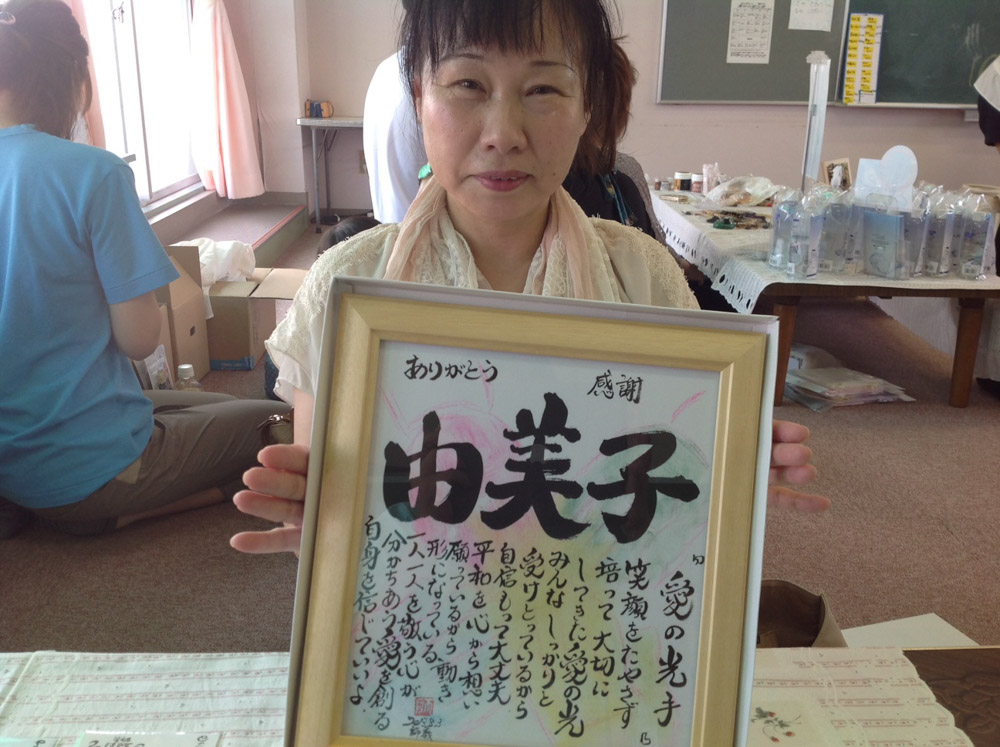 ありがとう
感謝
由美子
愛の光手
笑顔をたやさず
培って大切に
してきた愛の光
みんなしっかりと
受けとっているから
自信もって大丈夫
平和を心から想い
願っているから動き
形になっている
一人一人を敬う心が
分かちあう愛を創る
自身を信じていいよ